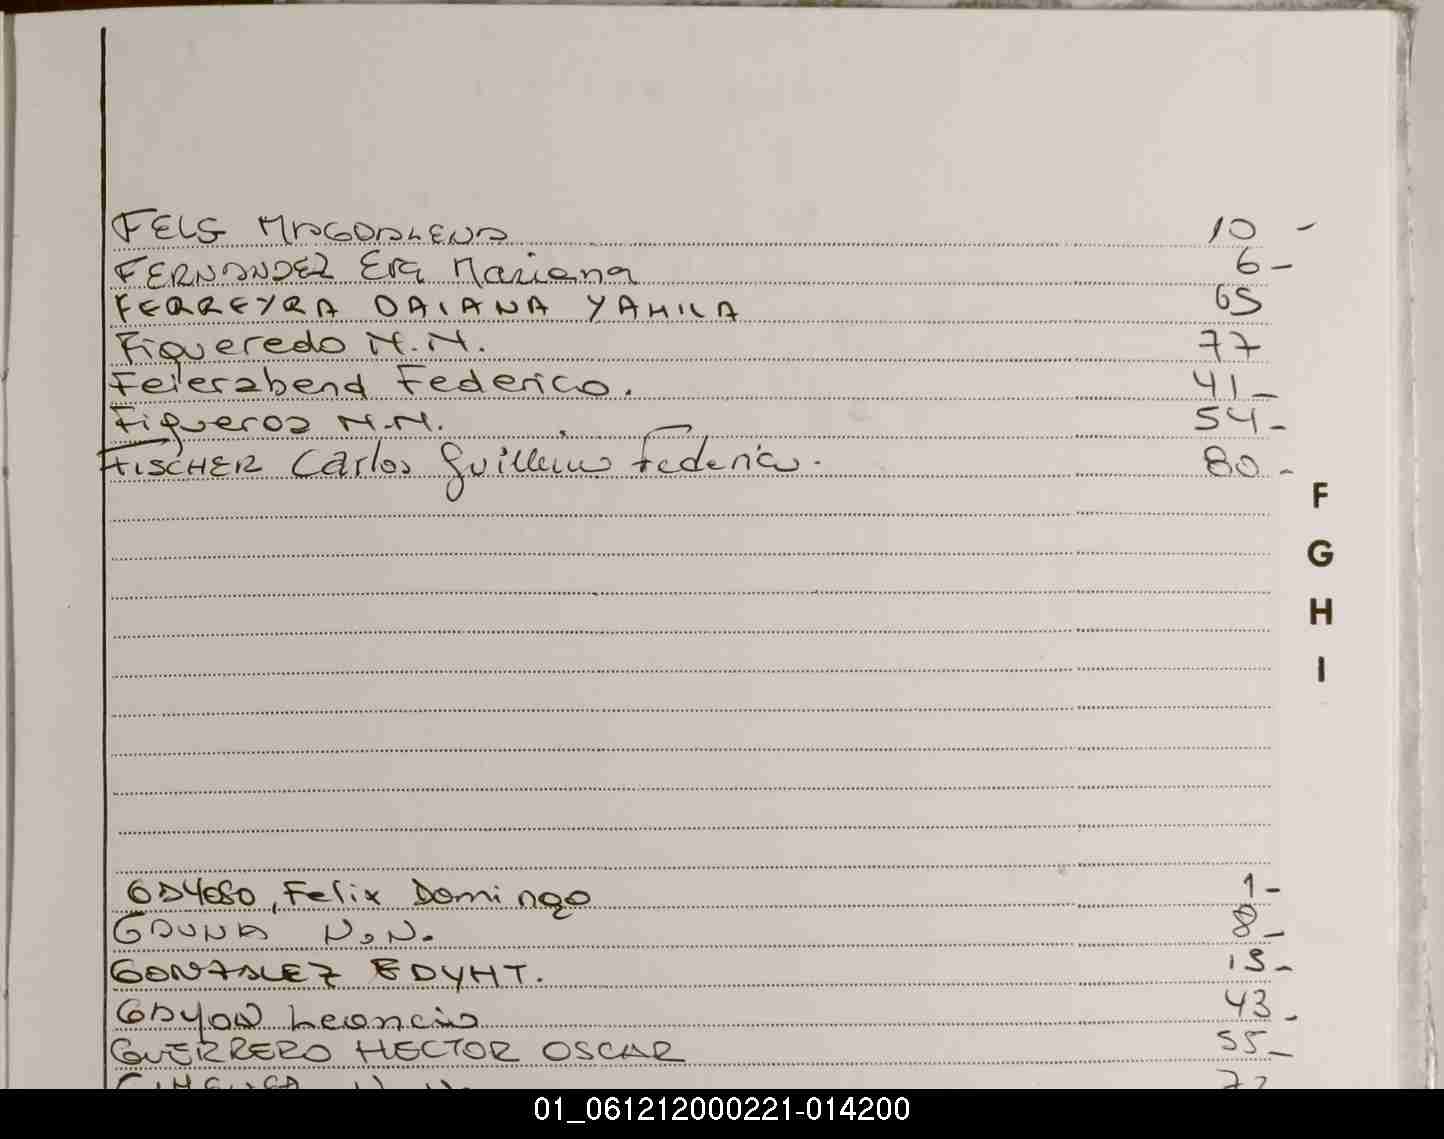 FELS MAGDALENA 10 -
FERNANDEZ Eva Mariana 6 -
FERREYRA DAIANA YAMILA 65
Figueredo N.N. 77
Feierabend Federico. 41 -
Figueroa N.N. 54 -
FISCHER Carlos Guillermo Federico. 80 -
F
G
H
I
GAYOSO, Felix Domingo 1 -
GAUNA N.N. 8 -
GONZALEZ EDYHT. 15 -
GAYON Leoncio 43 -
GUERRERO HECTOR OSCAR 55 -
01_061212000221-014200